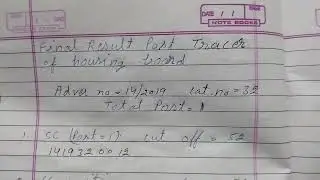 DATE 11
NOTE BOOKS
Final Result Post Tracer
of housing board
Adver no = 14/2019 Cat. no = 32
Total Post = 1
1. SC (Post = 1) cut off = 52
1419320012